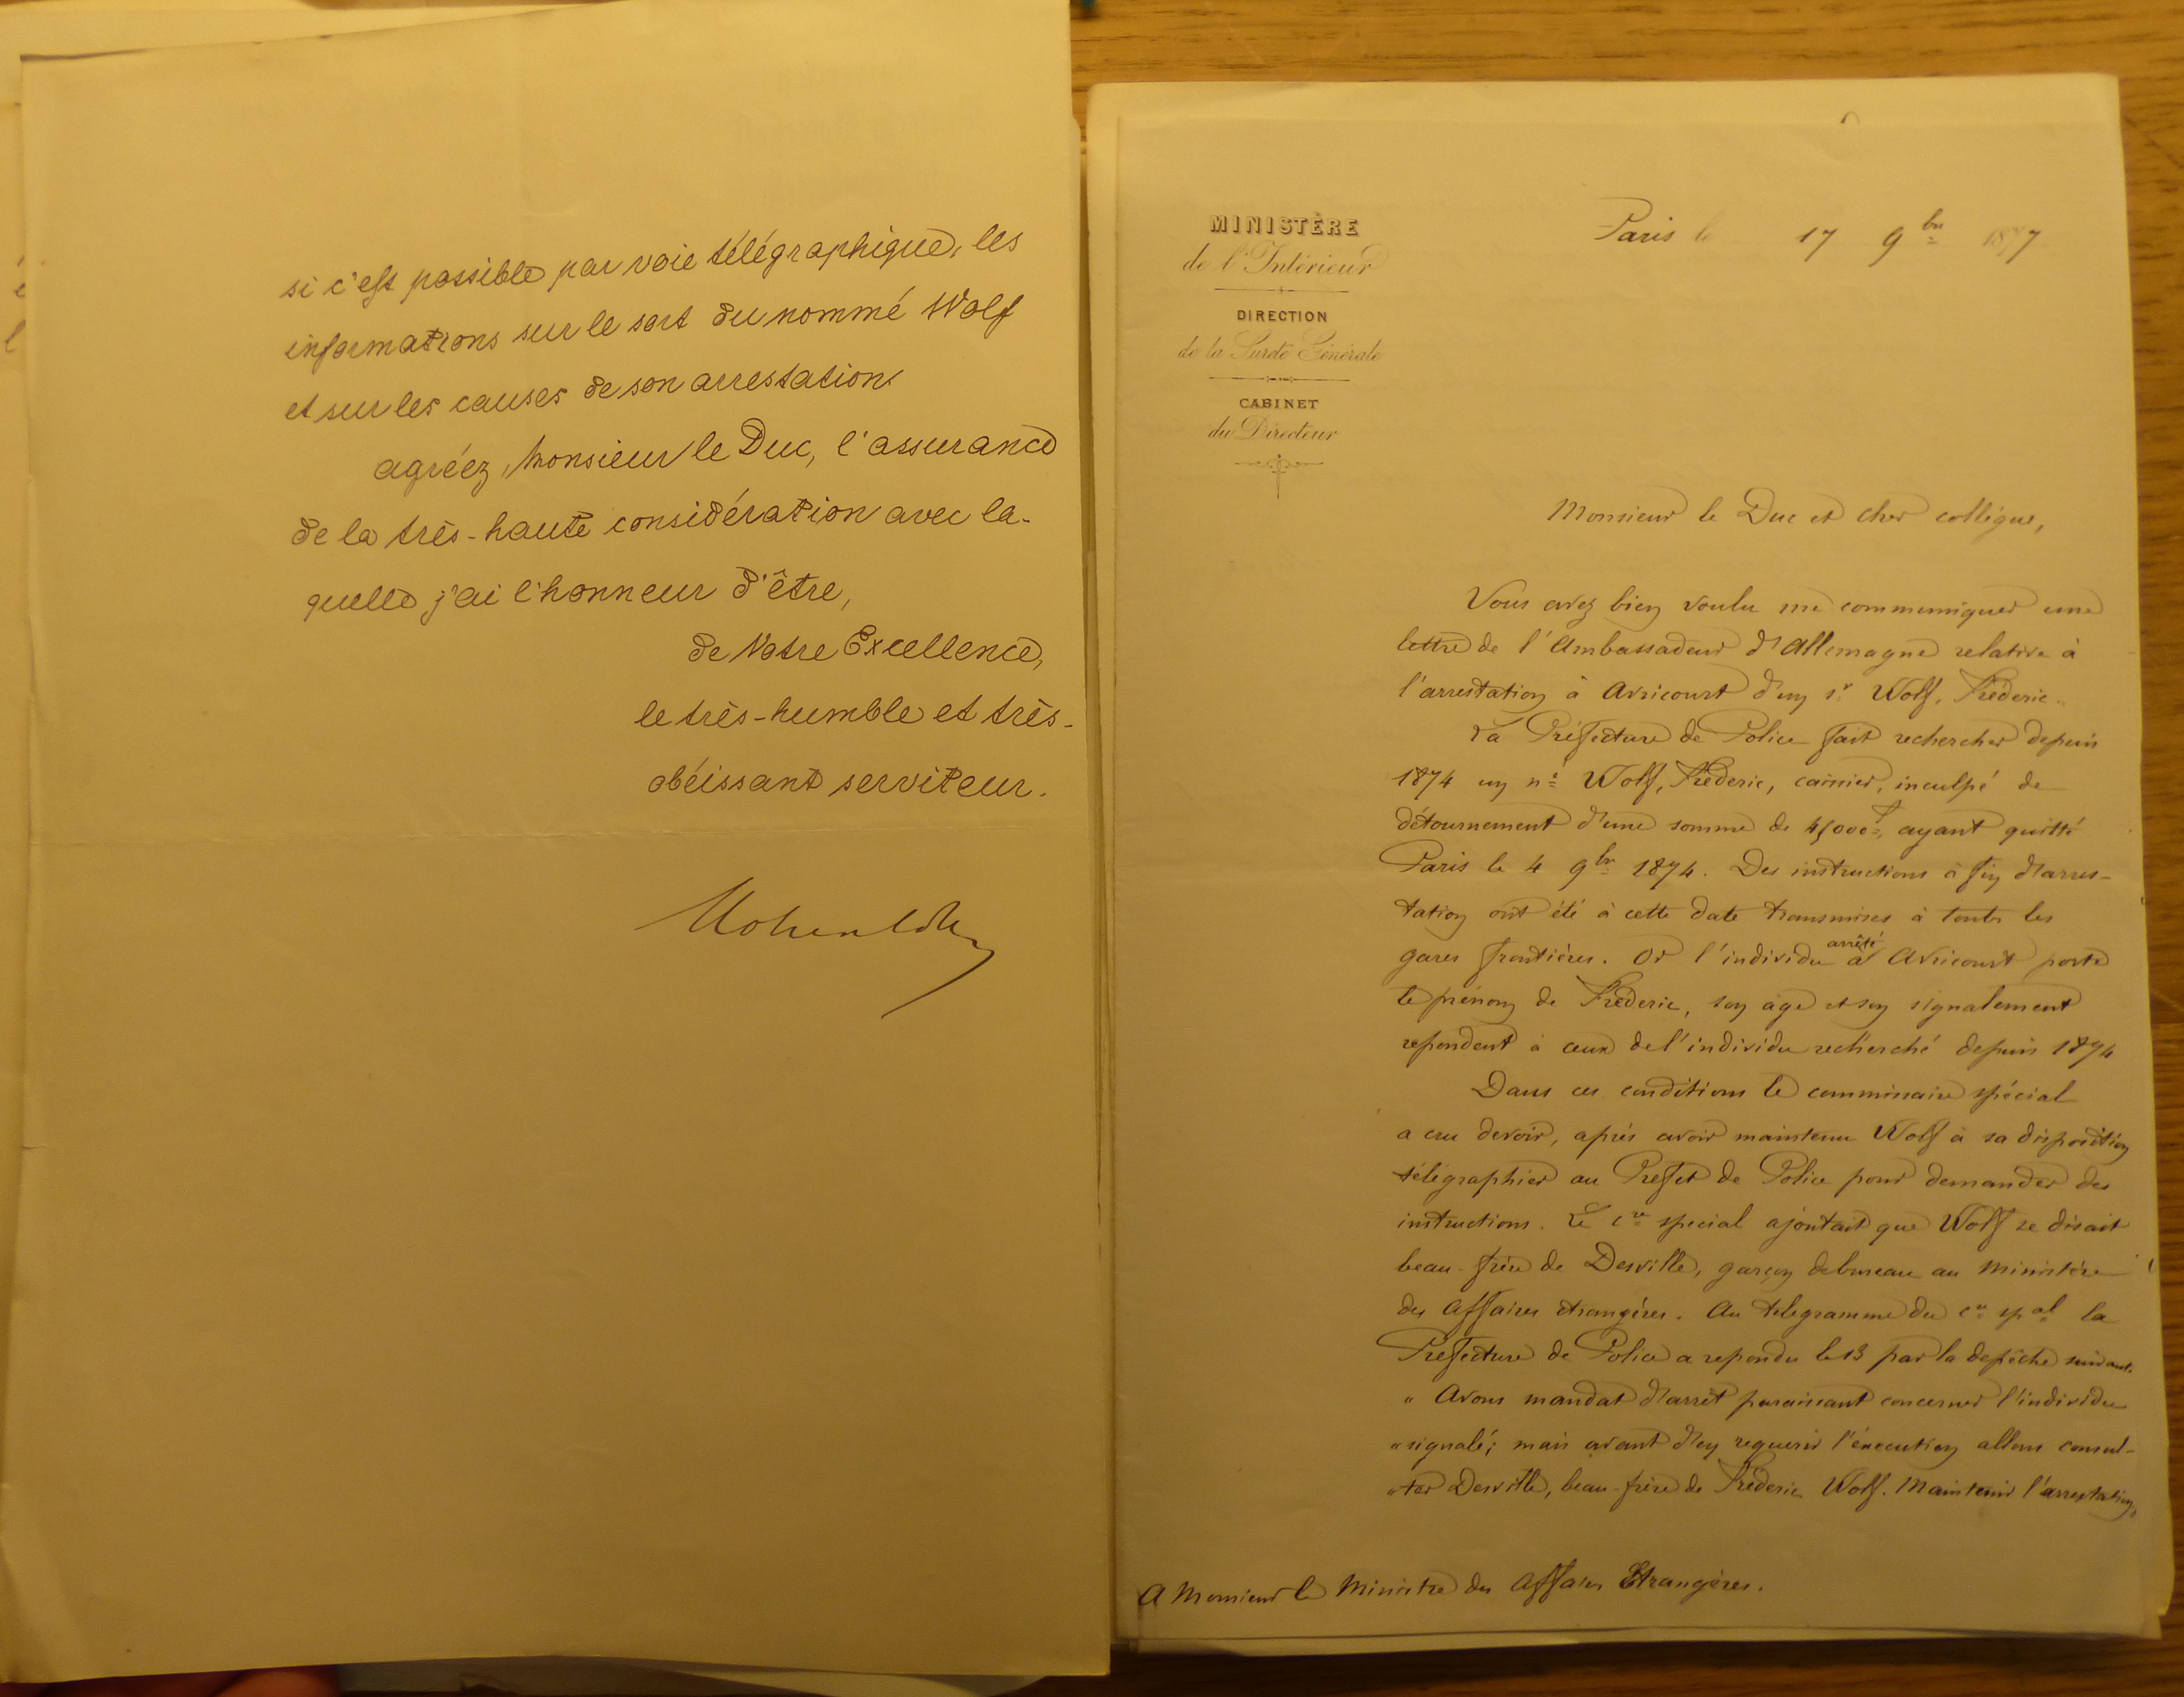 si c'est possible par voie télégraphique, les
informations sur le sort du nommé Wolf
et sur les causes de son arrestation.
agréez, Monsieur le Duc, l'assurance
de la très-haute considération avec la-
quelle j'ai l'honneur d'être,
de Votre Excellence,
le très-humble et très-
obéissant serviteur.
MINISTÈRE
de l'Intérieur
DIRECTION
de la Sureté Générale
CABINET
du Directeur
Paris le 17 9bre 1877
Monsieur le Duc et cher collégue,
Vous avez bien voulu me communiquer une
lettre de l'Ambassadeur d'Allemagne relative à
l'arrestation à Avricourt d'un sr Wolf, Fréderic.
La Préfecture de Police fait rechercher depuis
1874 un né Wolf, Fréderic, caissier, inculpé de
détournement d'une somme de 45000f, ayant quitté
Paris le 4 9bre 1874. Des instructions à fin d'arres-
tation ont été à cette date transmises à toutes les
gares frontières. Or l'individu arrêté à Avricourt porte
le prénom de Fréderic, son âge et son signalement
repondent à ceux de l'individu recherché depuis 1874
Dans ces conditions le commissaire spécial
a cru devoir, après avoir maintenu Wolf à sa disposition
télégraphier au Prefet de Police pour demander des
instructions. Le cre special ajoutait que Wolf se disait
beau-frère de Desville, garçon de bureau au Ministère
des Affaires étrangères. Au telegramme du cre spal la
Prefecture de Police a repondu le 13 par la depêche suivante.
" Avons mandat d'arrêt paraissant concerner l'individu
" signalé; mais avant d'en requerir l'éxecution allons consul-
" ter Desville, beau-frère de Fréderic Wolf. Maintenir l'arrestation,
A Monsieur le Ministre des Affaires Etrangères.